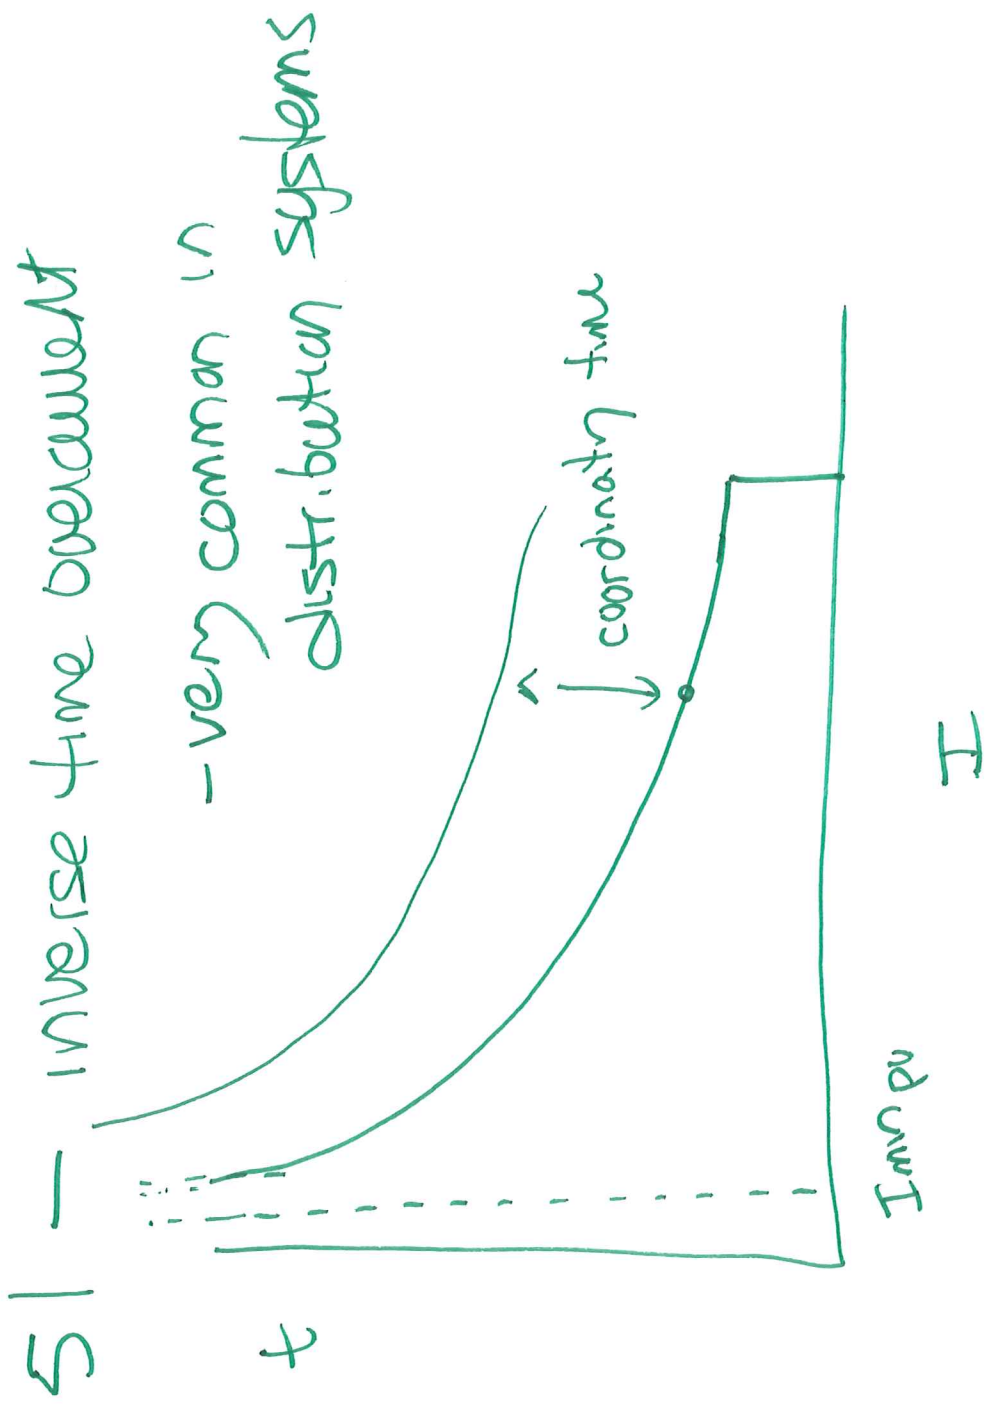 51 – inverse time overcurrent
– very common in
distribution systems
t
coordinatn time
Imin pu
I